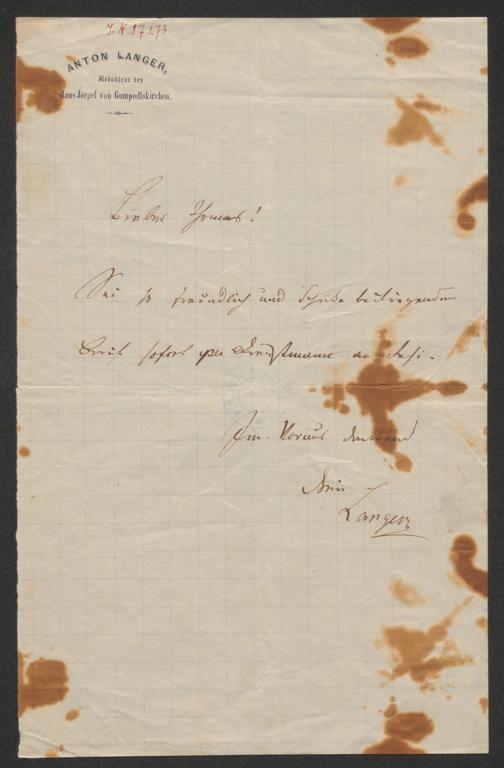 I. N. 87.273
ANTON LANGER,
Redakteur des
Hans Jörgel von Gumpoldskirchen.
Lieber Thomas!
Sei so freundlich und schicke beiliegenden
Brief sofort per Dienstmann an
Im Voraus dankend
Dein
Langer